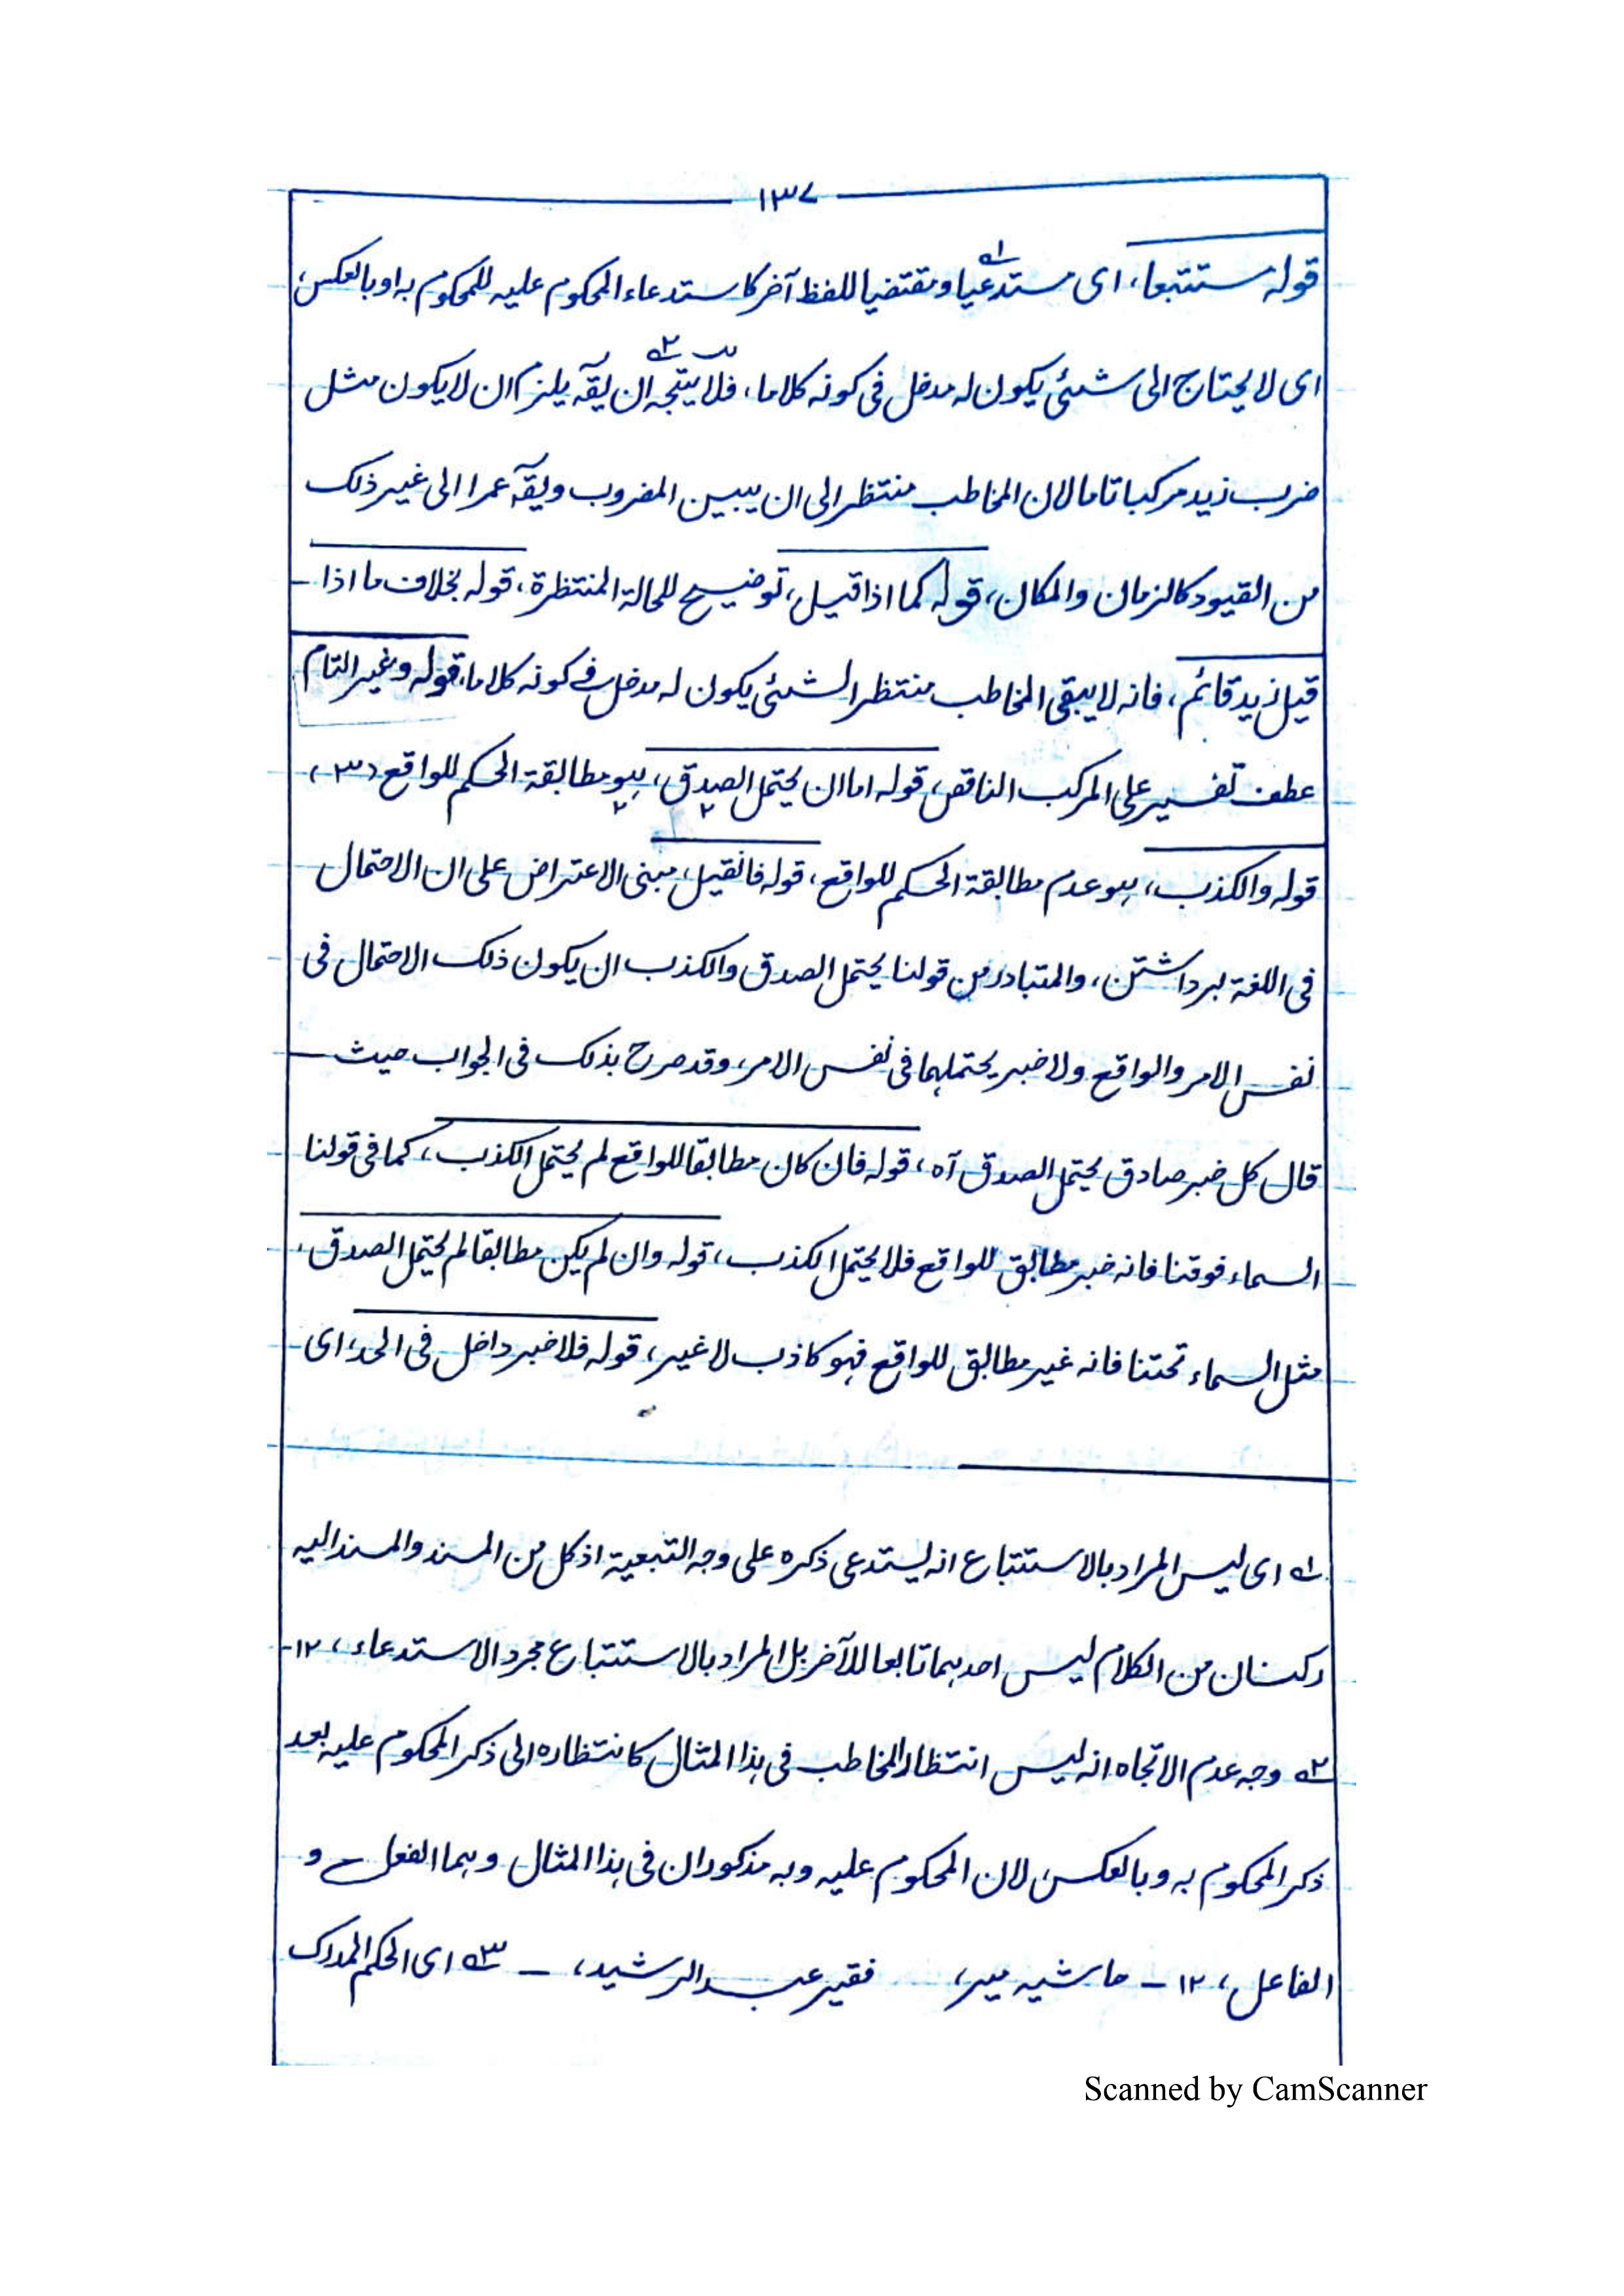 ١٣٧
قوله مستتبعا، اى مستدعيا ومقتضيا للفظ آخر كاستدعاء المحكوم عليه للمحكوم به او بالعكس،
اى لا يحتاج الى شئى يكون له مدخل فى كونه كلاما، فلا يتجه ان يقۤ يلزم ان لا يكون مثل
ضرب زيد مركبا تاما لان المخاطب منتظر الى ان يبين المضروب ويقۤ عمرا الى غير ذلك
من القيود كالزمان والمكان، قوله كما اذا قيل، توضيح للحالة المنتظرة، قوله بخلاف ما اذا
قيل زيد قائم، فانه لا يبقى المخاطب منتظرا لشئى يكون له مدخل فى كونه كلاما، قوله وغير التام
عطف تفسير على المركب الناقص، قوله اما ان يحتمل الصدق، ہو مطابقة الحكم للواقع (٣)،
قوله والكذب، ہو عدم مطابقة الحكم للواقع، قوله فانقيل، مبنى الاعتراض على ان الاحتمال
فى اللغة برداشتن، والمتبادر من قولنا يحتمل الصدق والكذب ان يكون ذلك الاحتمال فى
نفس الامر والواقع ولا خبر يحتملہما فى نفس الامر، وقد صرح بذلك فى الجواب حيث
قال كل خبر صادق يحتمل الصدق آه، قوله فان كان مطابقا للواقع لم يحتمل الكذب، كما فى قولنا
السماء فوقنا فانه خبر مطابق للواقع فلا يحتمل الكذب، قوله وان لم يكن مطابقا لم يحتمل الصدق،
مثل السماء تحتنا فانه غير مطابق للواقع فہو كاذب لا غير، قوله فلا خبر داخل فى الحد، اى
١ے اى ليس المراد بالاستتباع انه يستدعى ذكره على وجه التبعية اذ كل من المسند والمسند اليه
ركنان من الكلام ليس احدہما تابعا للآخر بل المراد بالاستتباع مجرد الاستدعاء، ١٢-
٢ے وجه عدم الاتجاه انه ليس انتظار المخاطب فى ہذا المثال كانتظاره الى ذكر المحكوم عليه بعد
ذكر المحكوم به وبالعكس لان المحكوم عليه وبه مذكوران فى ہذا المثال وہما الفعل و
الفاعل، ١٢ - حاشيه مير، فقير عبد الرشيد، - ٣ے اى الحكم المدرك
Scanned by CamScanner